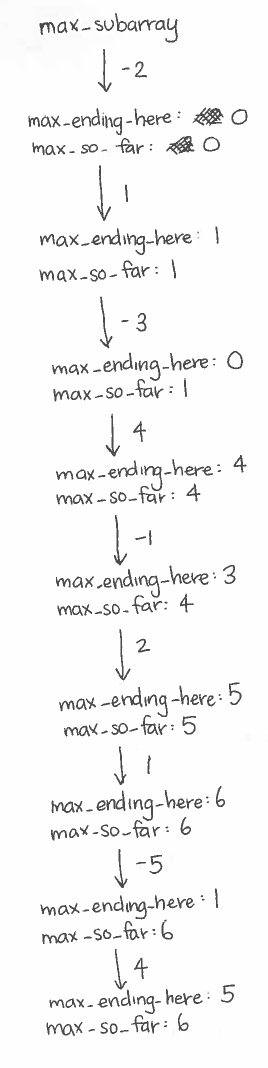 max_subarray
-2
max_ending_here: 0
max_so_far: 0
1
max_ending_here: 1
max_so_far: 1
-3
max_ending_here: 0
max_so_far: 1
4
max_ending_here: 4
max_so_far: 4
-1
max_ending_here: 3
max_so_far: 4
2
max_ending_here: 5
max_so_far: 5
1
max_ending_here: 6
max_so_far: 6
-5
max_ending_here: 1
max_so_far: 6
4
max_ending_here: 5
max_so_far: 6